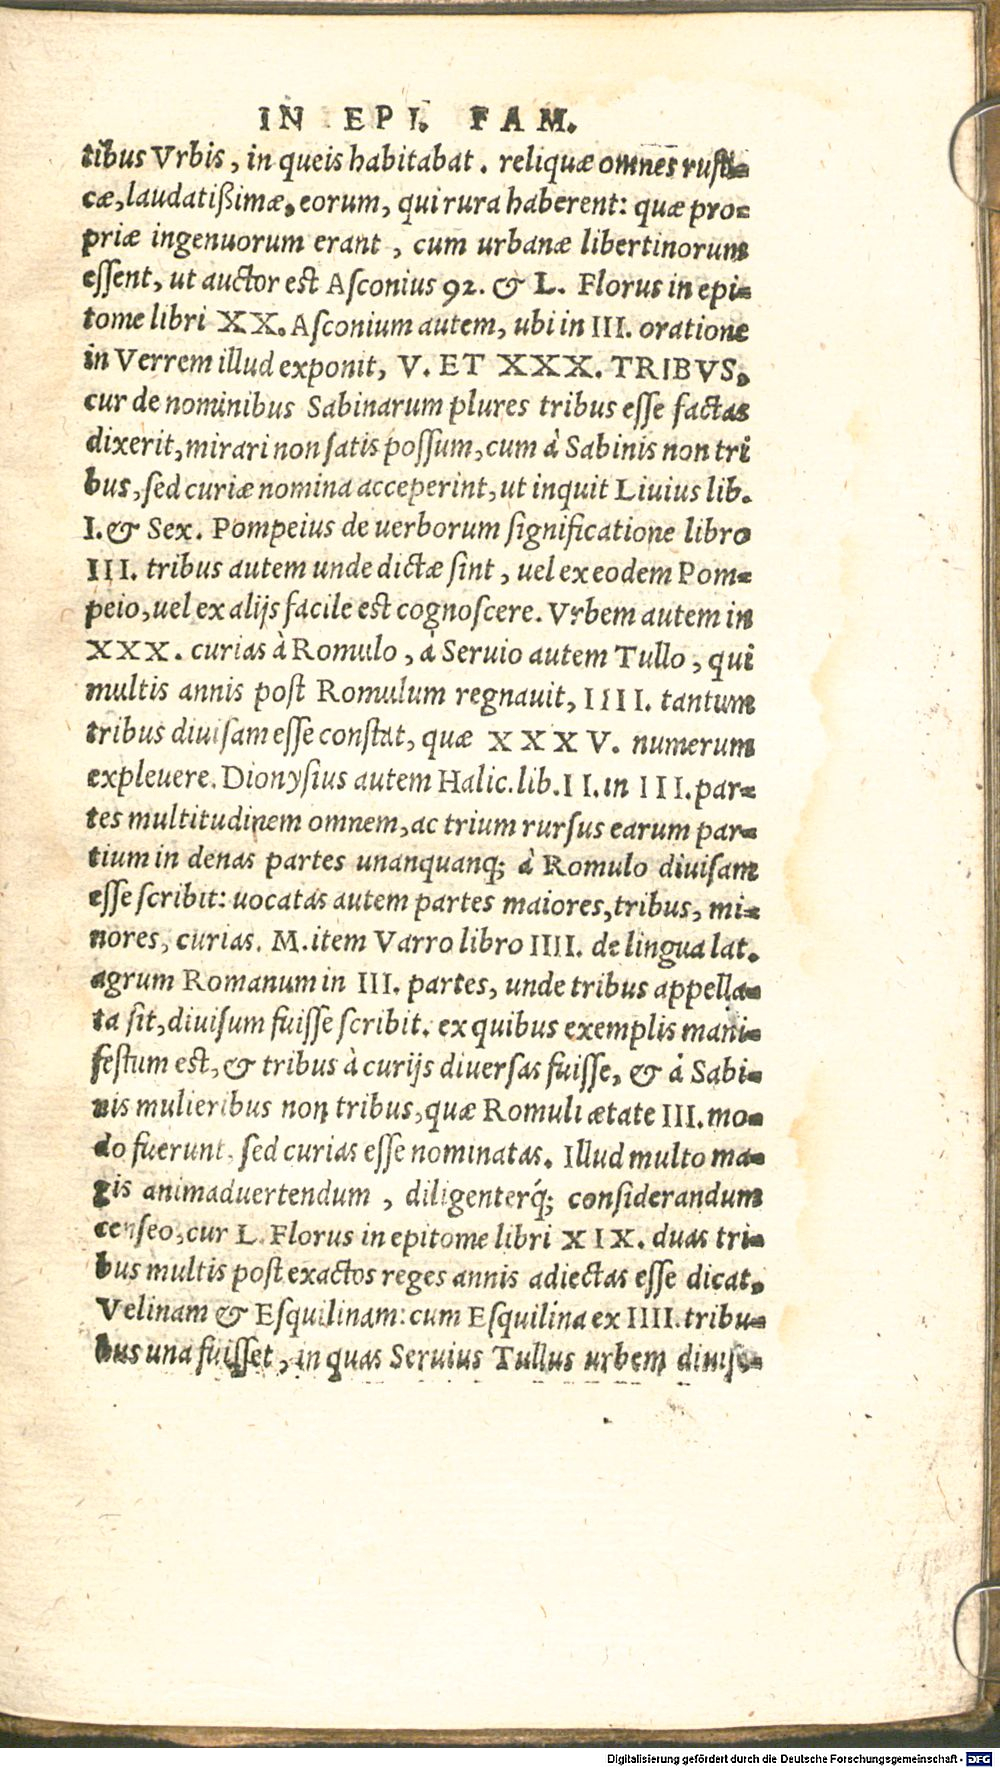 IN EPI. FAM.
tibus Vrbis, in queis habitabat. reliquæ omnes rusti-
cæ, laudatißimæ, eorum, qui rura haberent: quæ pro-
priæ ingenuorum erant, cum urbanæ libertinorum
essent, ut auctor est Asconius 92. & L. Florus in epi-
tome libri XX. Asconium autem, ubi in III. oratione
in Verrem illud exponit, V. ET XXX. TRIBVS,
cur de nominibus Sabinarum plures tribus esse factas
dixerit, mirari non satis possum, cum à Sabinis non tri
bus, sed curiæ nomina acceperint, ut inquit Liuius lib.
I. & Sex. Pompeius de uerborum significatione libro
III. tribus autem unde dictæ sint, uel ex eodem Pom-
peio, uel ex alijs facile est cognoscere. Vrbem autem in
XXX. curias à Romulo, á Seruio autem Tullo, qui
multis annis post Romulum regnauit, IIII. tantum
tribus diuisam esse constat, quæ XXXV. numerum
expleuere. Dionysius autem Halic. lib. II. in III. par-
tes multitudinem omnem, ac trium rursus earum par-
tium in denas partes unanquanq; à Romulo diuisam
esse scribit: uocatas autem partes maiores, tribus, mi-
nores, curias. M. item Varro libro IIII. de lingua lat.
agrum Romanum in III. partes, unde tribus appella-
ta sit, diuisum fuisse scribit. ex quibus exemplis mani-
festum est, & tribus à curijs diuersas fuisse, & à Sabi-
nis mulieribus non tribus, quæ Romuli ætate III. mo-
do fuerunt, sed curias esse nominatas. Illud multo ma-
gis animaduertendum, diligenterq́; considerandum
censeo, cur L. Florus in epitome libri XIX. duas tri-
bus multis post exactos reges annis adiectas esse dicat,
Velinam & Esquilinam: cum Esquilina ex IIII. tribu-
bus una fuisset, in quas Seruius Tullus urbem diuise-
Digitalisierung gefördert durch die Deutsche Forschungsgemeinschaft - DFG